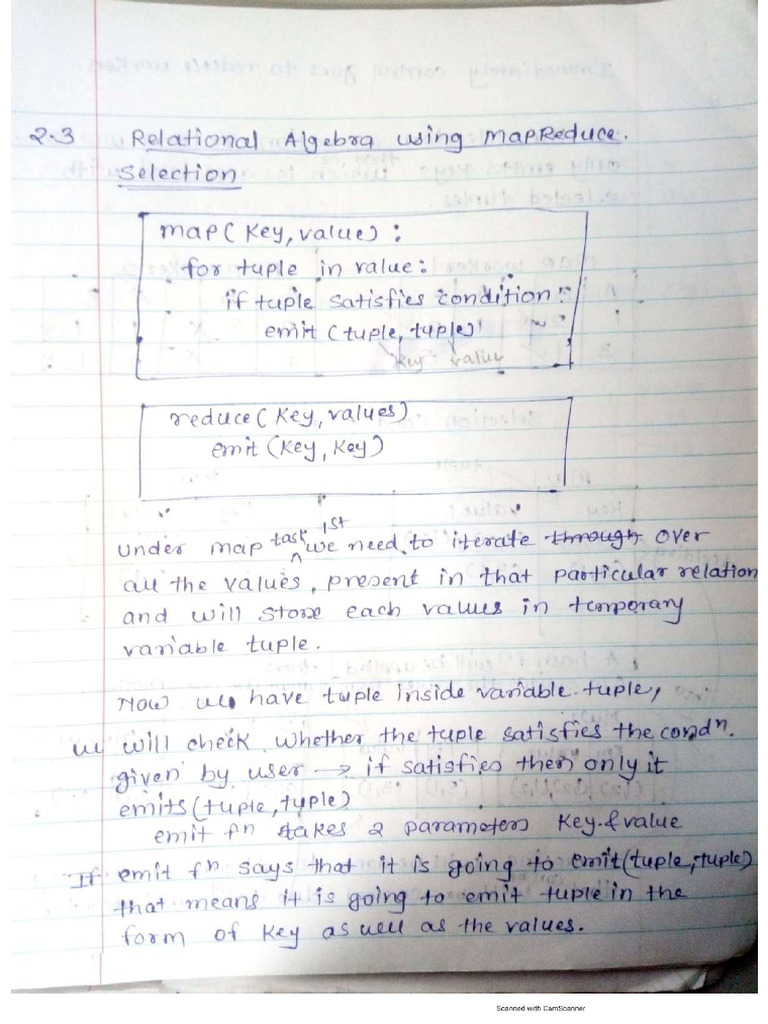 2.3 Relational Algebra using MapReduce.
Selection
map(key, value) :
for tuple in value:
if tuple satisfies condition:
emit (tuple, tuple)
key value
reduce(key, values)
emit (key, key)
under map task 1st we need to iterate through over
all the values, present in that particular relation
and will store each values in temporary
variable tuple.
Now we have tuple inside variable tuple,
we will check whether the tuple satisfies the condn.
given by user → if satisfies then only it
emits(tuple, tuple)
emit fn takes 2 parameters key & value
If emit fn says that it is going to emit(tuple, tuple)
that means it is going to emit tuple in the
form of key as well as the values.
Scanned with CamScanner